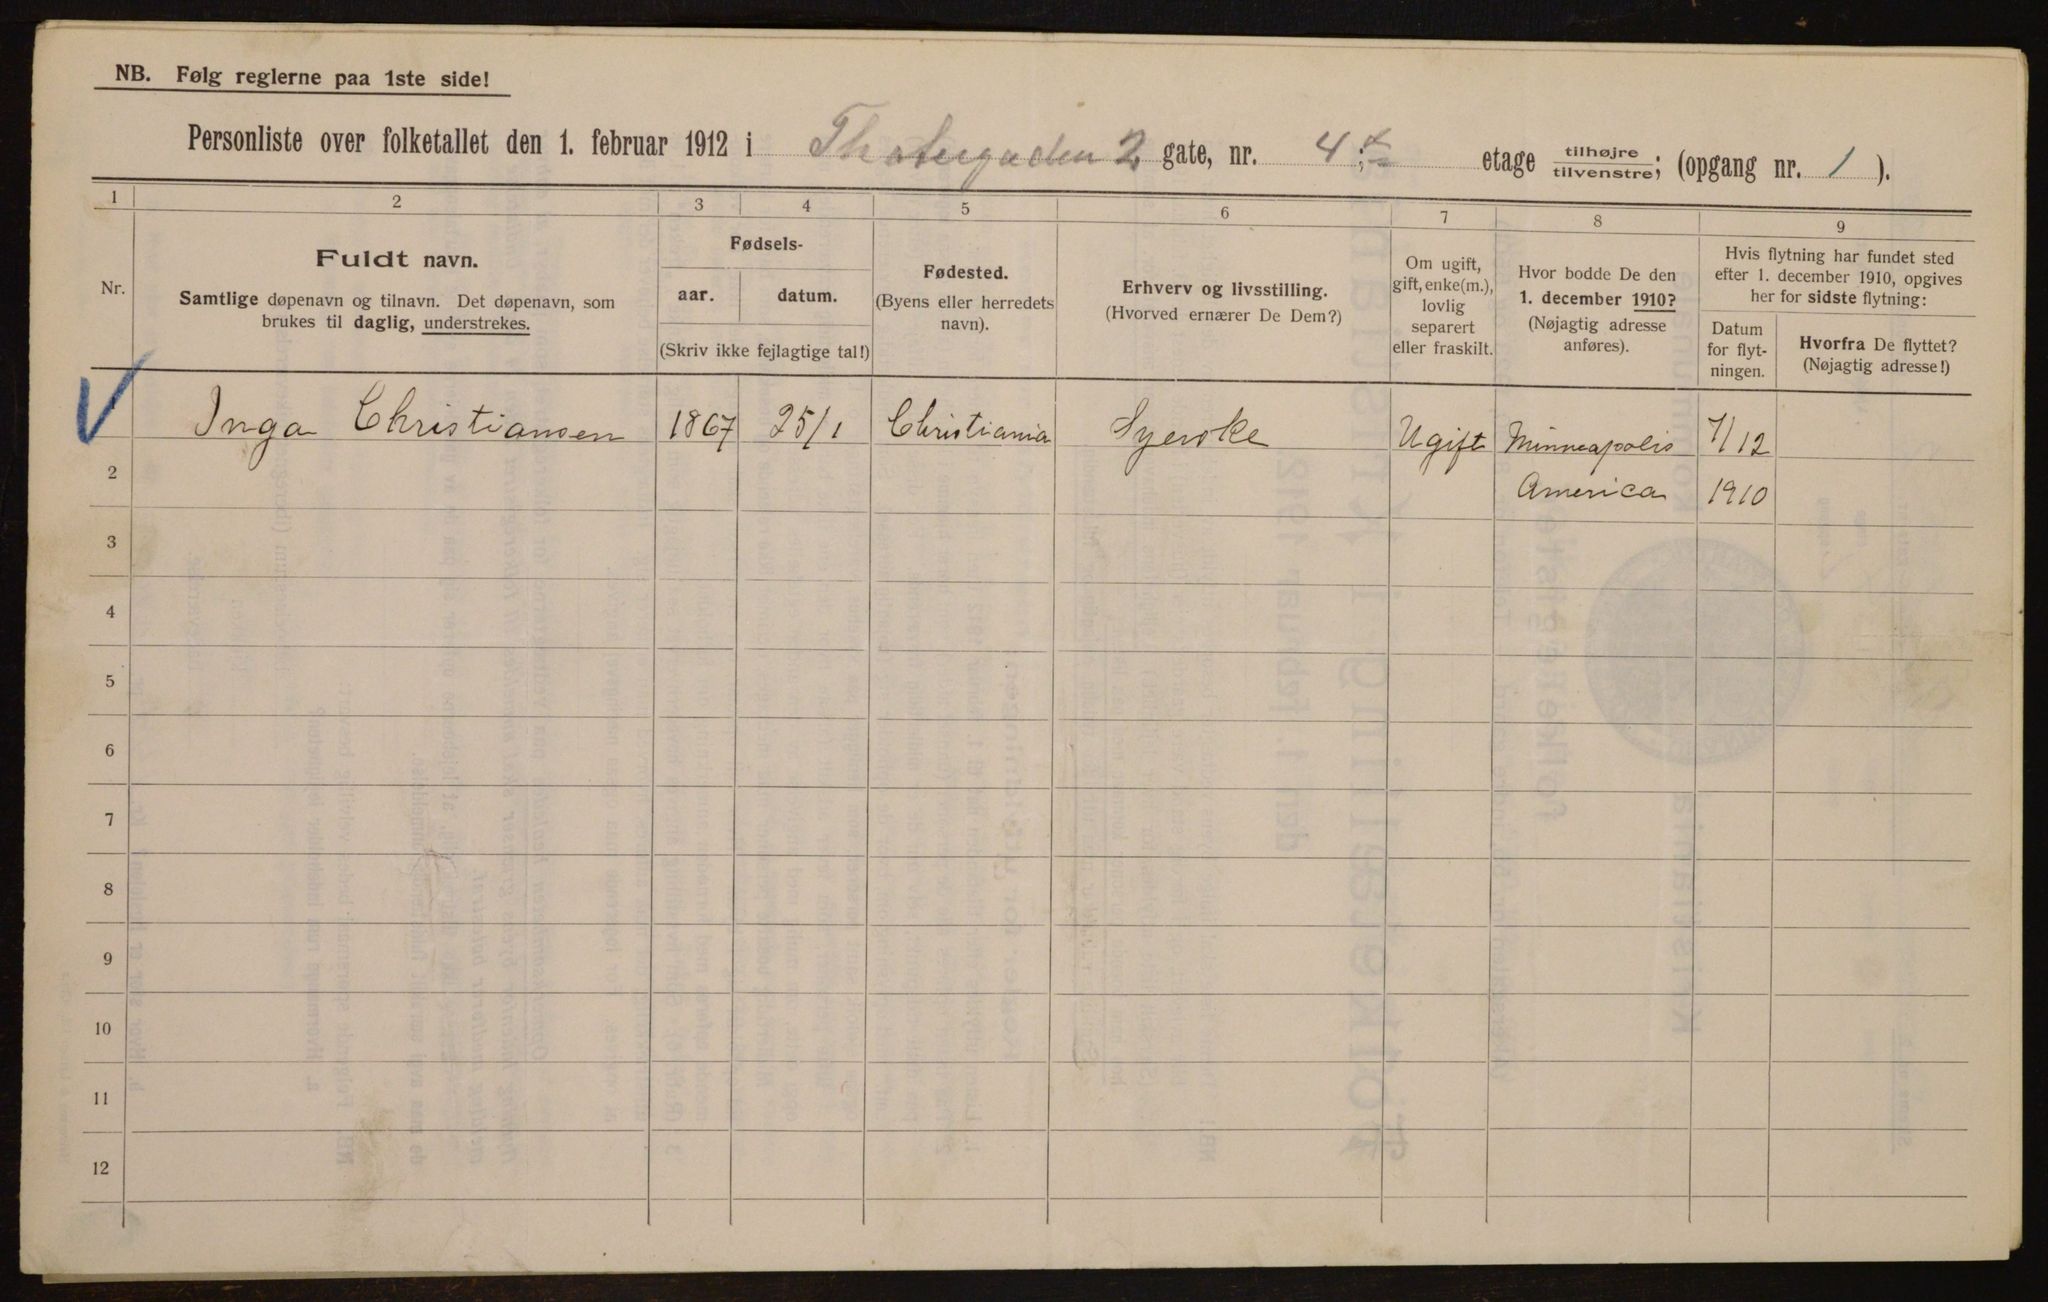 NB. Følg reglerne paa 1ste side!
Personliste over folketallet den 1. februar 1912 i Theatergaden 2 gate, nr. 4; etage tilhøjre tilvenstre; (opgang nr. 1 ).
1 2 3 4 5 6 7 8 9
Nr.
Fuldt navn.
Samtlige døpenavn og tilnavn. Det døpenavn, som
brukes til daglig, understrekes.
Fødsels-
aar. datum.
(Skriv ikke fejlagtige tal!)
Fødested.
(Byens eller herredets
navn).
Erhverv og livsstilling.
(Hvorved ernærer De Dem?)
Om ugift,
gift, enke(m.),
lovlig
separert
eller fraskilt.
Hvor bodde De den
1. december 1910?
(Nøjagtig adresse
anføres).
Hvis flytning har fundet sted
efter 1. december 1910, opgives
her for sidste flytning:
Datum
for flyt-
ningen.
Hvorfra De flyttet?
(Nøjagtig adresse!)
Inga Christiansen 1867 25/1 Christiania Syerske Ugift Minneapolis 7/12
2 America 1910
3
4
5
6
7
8
9
10
11
12